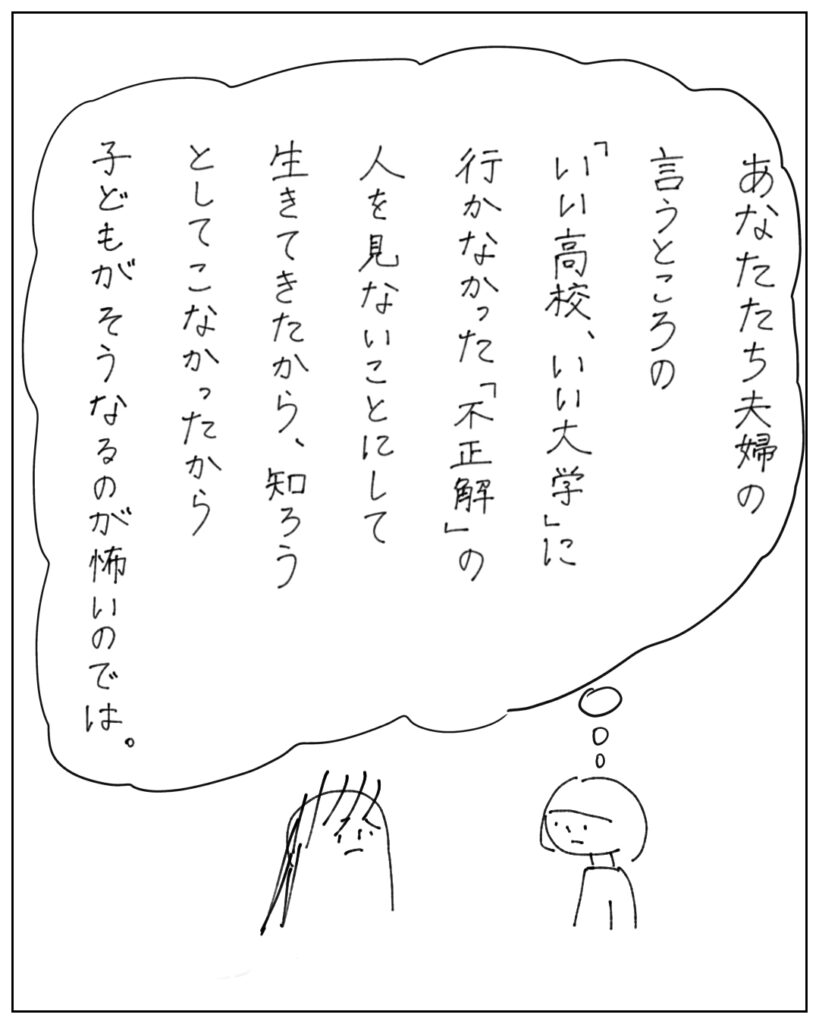 あなたたち夫婦の
言うところの
「いい高校、いい大学」に
行かなかった「不正解」の
人を見ないことにして
生きてきたから、知ろう
としてこなかったから
子どもがそうなるのが怖いのでは。